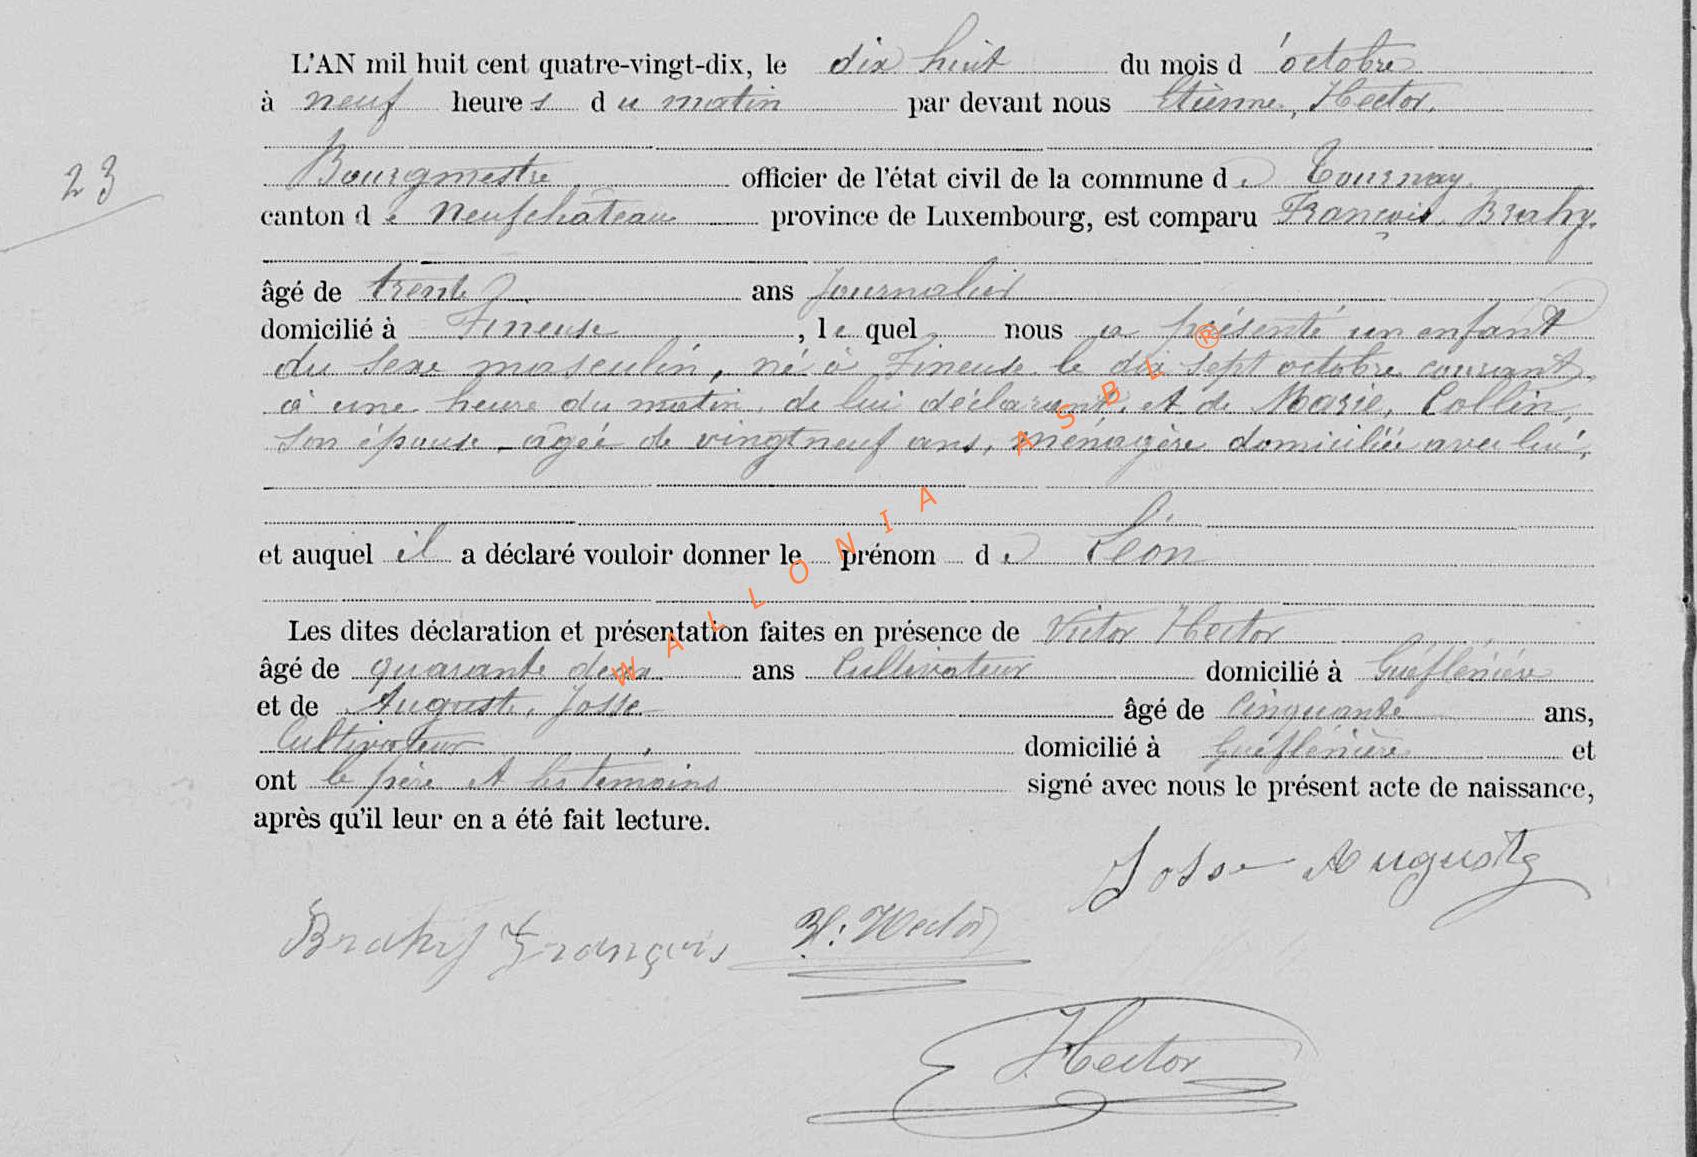 L'AN mil huit cent quatre-vingt-dix, le dix huit du mois d'octobre
à neuf heures du matin par devant nous Etienne, Hector,
23
Bourgmestre officier de l'état civil de la commune de Tournay.
canton de Neufchâteau province de Luxembourg, est comparu François Brahy.
âgé de trente ans journalier
domicilié à Fineuse, lequel nous a présenté un enfant
du sexe masculin, né à Fineuse le dix sept octobre courant,
à une heure du matin, de lui déclarant, et de Marie, Collin,
son épouse, agée de vingt neuf ans, ménagère domiciliée avec lui,
et auquel il a déclaré vouloir donner le prénom de Léon
Les dites déclaration et présentation faites en présence de Victor Hector
âgé de quarante deux ans Cultivateur domicilié à
et de Auguste, Josse âgé de Cinquante ans,
Cultivateur domicilié à et
ont le père et les temoins signé avec nous le présent acte de naissance,
après qu'il leur en a été fait lecture.
Josse Auguste
Brahy François V. Hector
E Hector
WALLONIA ASBL ®